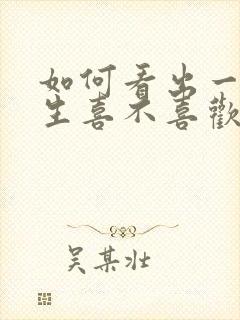 如何看出一
生喜不喜歡
吴某壮